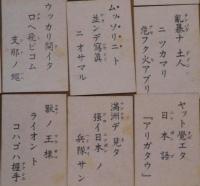 ヤット覺エタ
日本語
『アリガタウ』
亂暴ナ土人
ニツカマリ
危フク火アブリ
満洲デ見タ
強イ日本ノ
兵隊サン
ムッツリニト
並ンデ寫眞
ニオサマル
獸ノ王様
ライオント
コハゴハ握手
ウッカリ開イタ
口ヘ飛ビコム
支那ノ蠅